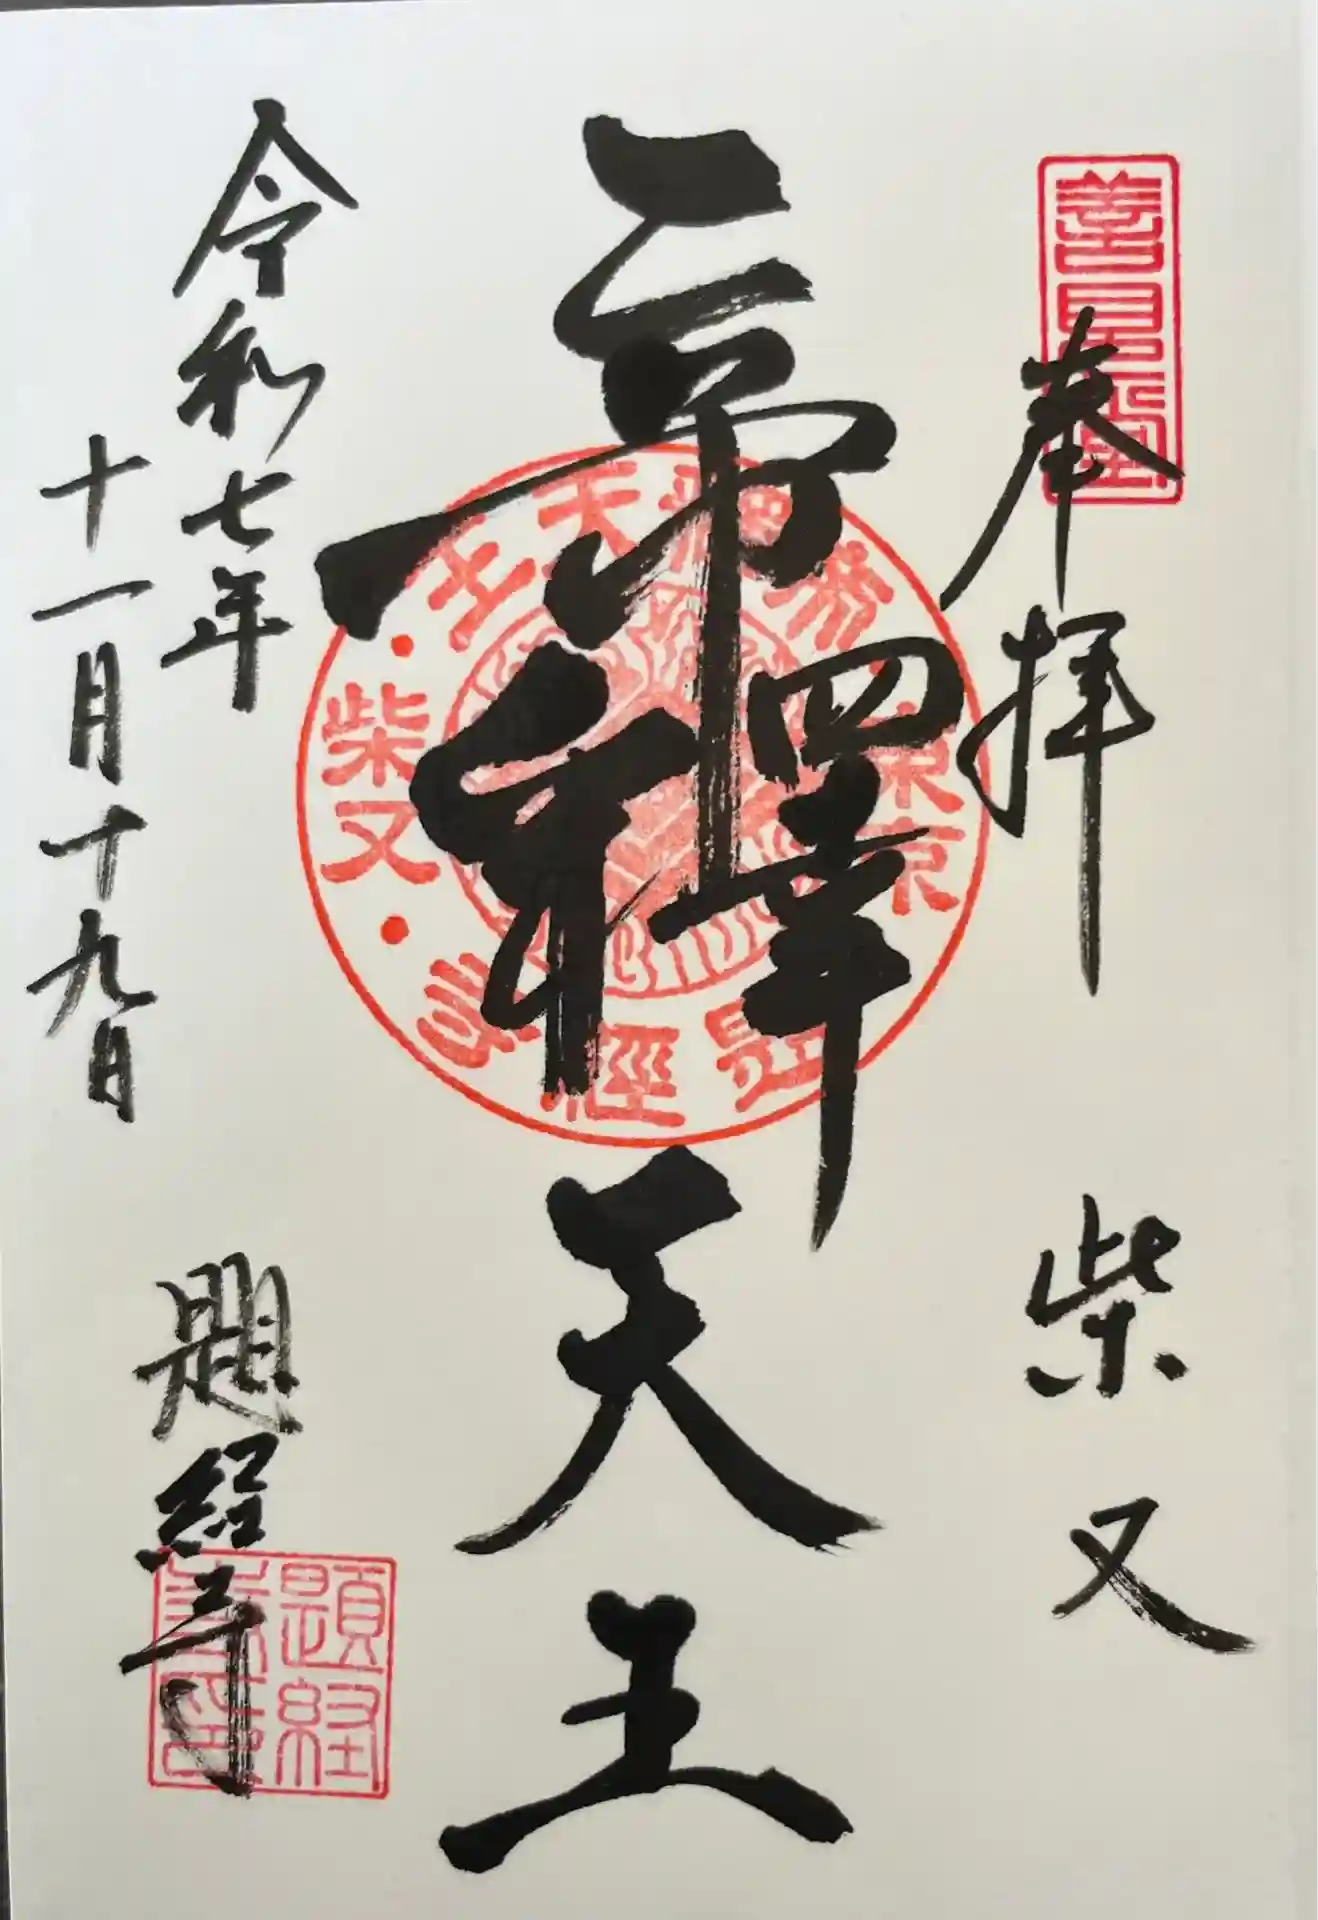 奉拝 柴又
善見堂
帝釋天王
東京 帝釋天王 柴又 題經寺
令和七年
十一月十九日
題経寺
題経寺印